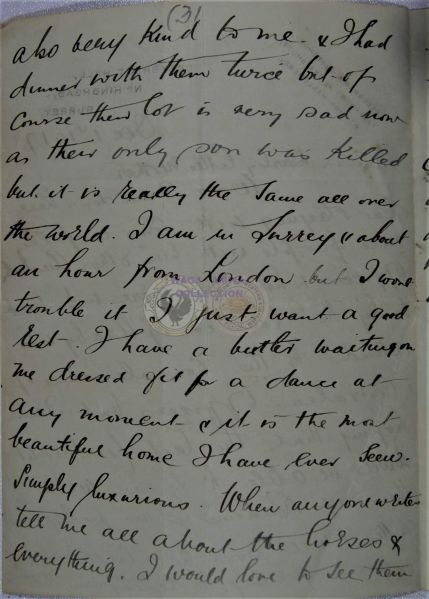 (3)
also very kind to me. & I had
dinner with them twice but of
course their lot is very sad now
as their only son was killed
but it is really the same all over
the world. I am in Surrey & about
an hour from London but I wont
trouble it I just want a good
rest. I have a butler waiting on
me dressed fit for a dance at
any moment & it is the most
beautiful home I have ever seen.
Simply luxurious. When anyone writes
tell me all about the horses &
everything. I would love to see them
COLLECTION